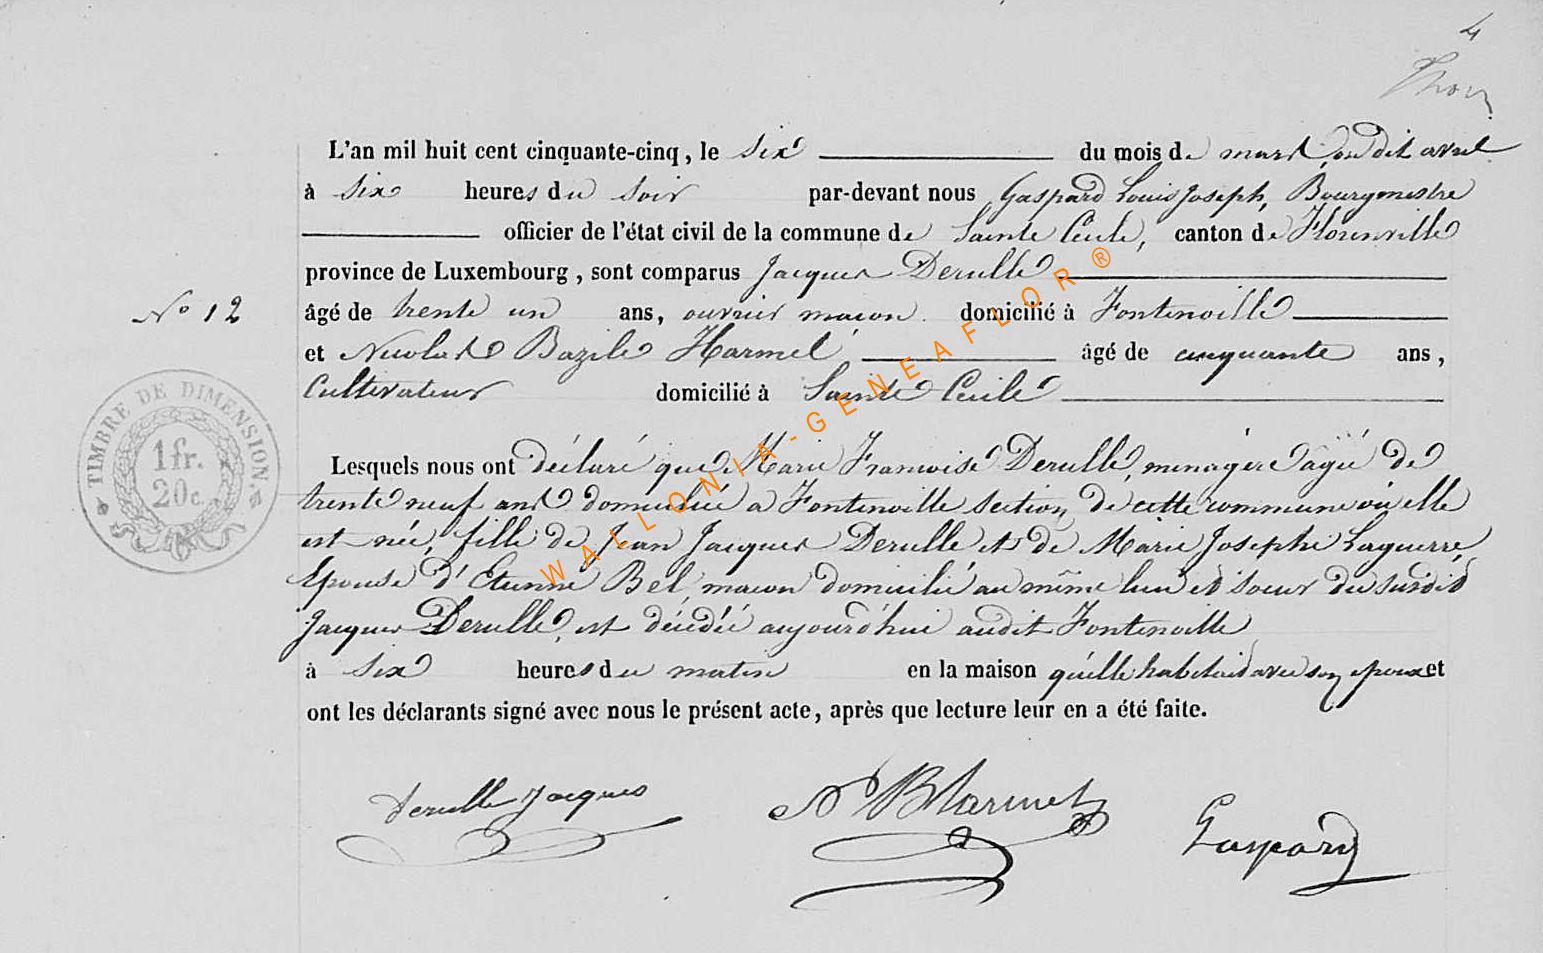 4
Thon
L'an mil huit cent cinquante-cinq, le six du mois de mars on dit avril
à six heures du soir par-devant nous Gaspard Louis Joseph, Bourgmestre
officier de l'état civil de la commune de Sainte Cecile, canton de Florenville
province de Luxembourg, sont comparus Jacques Derulle
N° 12
âgé de trente un ans, ouvrier maçon domicilié à Fontenoille
et Nicolas Bazile Harmel, âgé de cinquante ans,
Cultivateur domicilié à Sainte Cecile
TIMBRE DE DIMENSION.
1 fr.
20 c.
Lesquels nous ont déclaré que Marie Francoise Derulle, ménagère agée de
trente neuf ans domiciliée a Fontenoille section de cette commune où elle
est née, fille de Jean Jacques Derulle et de Marie Josephe Laguerre,
Epouse d'Etienne Bel, macon domicilié au même lieu et soeur du susdit
Jacques Derulle, est décédée aujourd'hui audit Fontenoille
à six heures du matin en la maison qu'elle habitait avec son epoux et
ont les déclarants signé avec nous le présent acte, après que lecture leur en a été faite.
Derulle Jacques
N B Harmel
Gaspard
WALLONIA-GENEAFLOR®